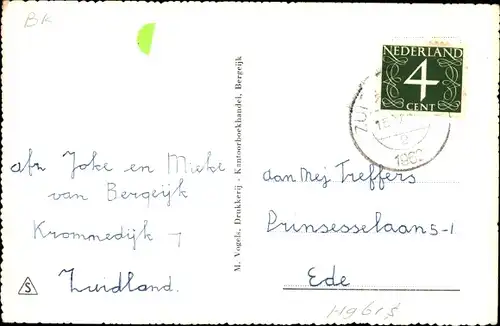 BK
NEDERLAND
4
CENT
ZUI
1962
afz Joke en Mieke
van Bergeijk
Krommedijk 7
Zuidland.
S
M. Vogels, Drukkerij - Kantoorboekhandel, Bergeijk
aan Mej Treffers
Prinsesselaan 5-1
Ede